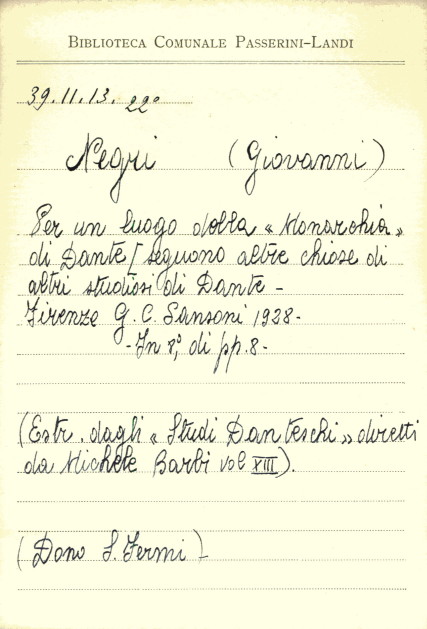 BIBLIOTECA COMUNALE PASSERINI-LANDI
39.11.13.22º
Negri (Giovanni)
Per un luogo della « Monarchia »
di Dante [seguono altre chiose di
altri studiosi di Dante -
Firenze G. C. Sansoni 1928-
- In 8º, di pp. 8 -
(Estr. dagli « Studi Danteschi » diretti
da Michele Barbi vol XIII).
(Dono S. Fermi) -